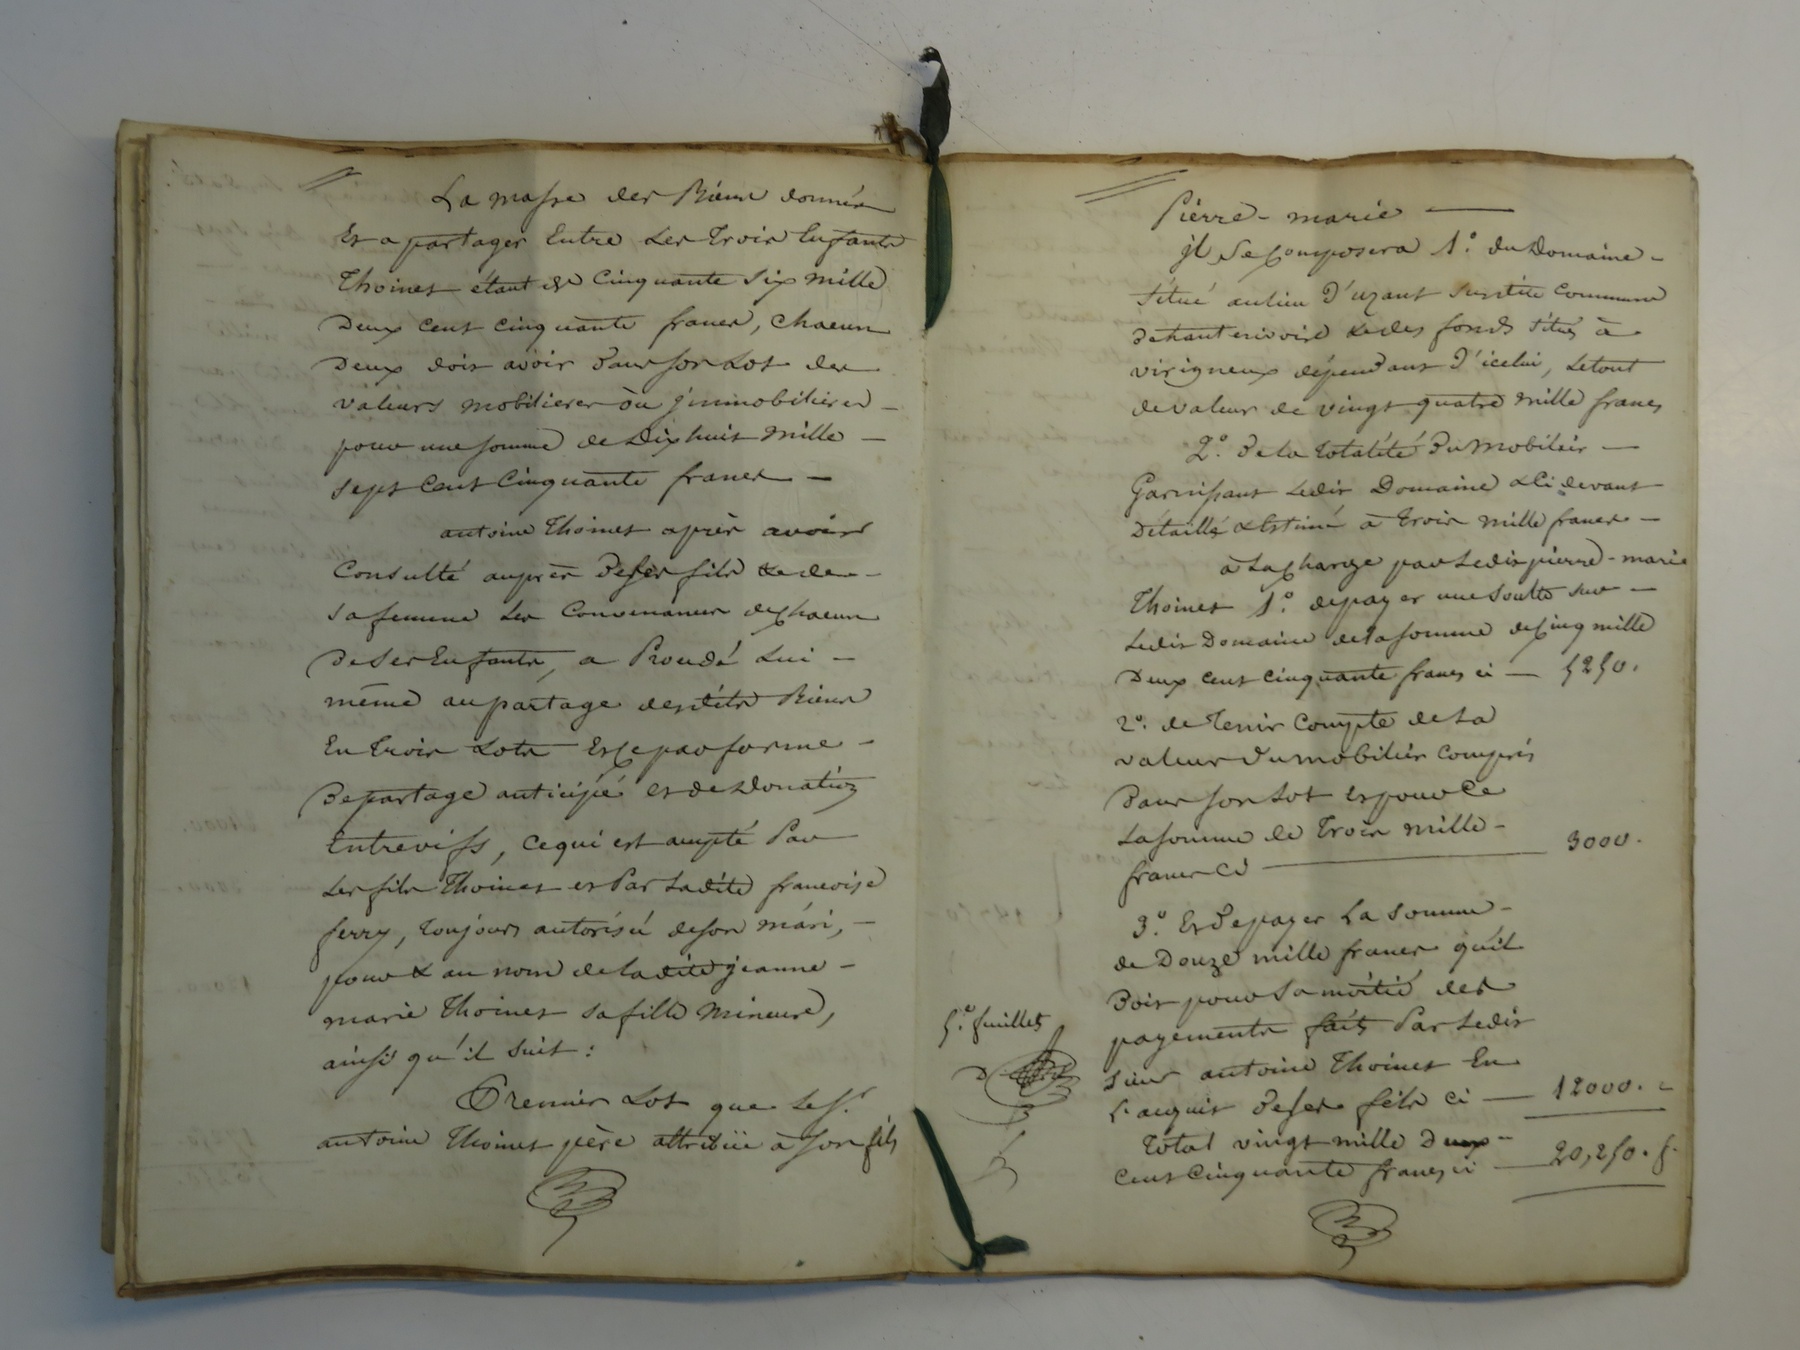 La masse des Biens donnés
Et a partager Entre Les trois Enfants
Thoinet étant de Cinquante Six mille
Deux cent cinquante francs, chacun
Deux doit avoir dans son Lot des
valeurs mobilieres ou jmmobilieres
pour une somme de Dix huit mille
sept cent Cinquante francs
antoine Thoinet après avoir
Consulté auprès de ses fils & de
sa femme Les Convenances de chacun
de Ses Enfants, a Procedé Lui
même au partage desdits Biens
En trois Lots Et ce par forme
De partage anticipé et de Donation
Entrevifs, ce qui est accepté Par
Les fils Thoinet et Par Ladite francoise
ferry, toujours autorisée de son mari,
pour & au nom de ladite jeanne
marie Thoinet sa fille mineure,
ainsi qu'il suit :
Premier Lot que le Sr.
antoine Thoinet père attribüe à son fils
Pierre - marie
jl Se Composera 1.° du Domaine
Situé au lieu D'uzant susdite Commune
& des fonds situés à
virigneux dépendant D'icelui, Le tout
de valeur de vingt quatre mille francs
2.° De la totalité Du Mobilier
Garnissant Ledit Domaine & Ci devant
Détaillé & Estimé à trois mille francs
à La Charge par Ledit pierre - marie
Thoinet 1.° de payer une Soulte sur
Ledit Domaine de la somme de Cinq mille
Deux cent cinquante francs ci — 5250.
2.° de Tenir Compte de La
valeur Du mobilier compris
Dans son Lot Et pour Ce
La somme de trois mille
francs Ci — 3000.
3.° Et De payer La Somme
de Douze mille francs qu'il
Doit pour Sa moitié des
payements faits Par Ledit
Sieur antoine Thoinet En
L'acquit de ses fils ci — 12000.
Total vingt mille Deux
Cent Cinquante francs ci — 20,250. f.
5.e feuillet